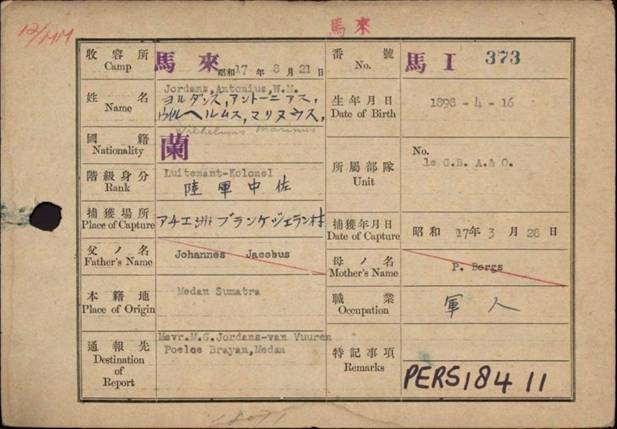 12/MM
馬來
收容所 Camp 馬來 昭和17年8月21日
番號 No. 馬I 373
姓名 Name Jordans,Antonius,W.M.
ヨルダンス,アントーニアス,
ウ#ルヘルムス,マリヌウス,
Wilhelmus Marinus
生年月日 Date of Birth 1898-4-16
國籍 Nationality 蘭
階級身分 Rank Luitenant-Kolonel
陸軍中佐
所屬部隊 Unit No.
1e G.B. A.& O.
捕獲場所 Place of Capture アチエ州 ブランケジェラン村
捕獲年月日 Date of Capture 昭和 17年3月28日
父ノ名 Father's Name Johannes Jacobus
母ノ名 Mother's Name P. Bergs
本籍地 Place of Origin Medan Sumatra
職業 Occupation 軍人
通報先 Destination of Report Mevr.M.G.Jordans-van Vuuren
Poeloe Brayan,Medan
特記事項 Remarks
PERS 184 11